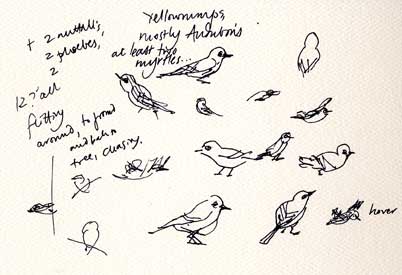 + 2 nuttall's,
2 phoebes,
2
12? all
flitting
around, to ground
and back to
tree, chasing.
Yellowrumps,
mostly Audubon's
at least two
myrtles...
hover